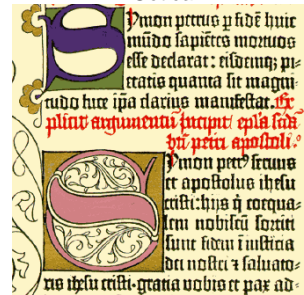 Symon petrus p̱ fidē huic
mūdo sapiētes mortuos
esse declarat: eisdemqꝫ pi-
etatis quanta sit magni-
tudo luce ip̄a clarius manifestat. Ex
plicit argumentū Incipit ep̄la
bt̄i petri apostoli.
Symon petrꝰ seruus
et apostolus ihesu
cristi: hijs q̄ coequa-
lem nobiscū sortiti
sunt fidem ī iusticia
dei nostri ⁊ saluato-
ris ihesu cristi. gratia vobis et pax ad-